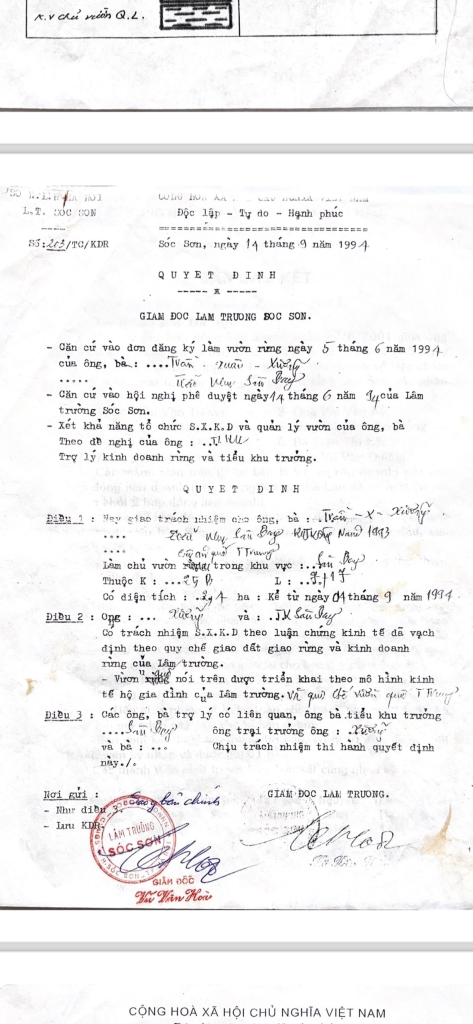 K.V chủ vườn Q.L.
L.T. SÓC SƠN
Số:203/TC/KDR
Độc lập - Tự do - Hạnh phúc
Sóc Sơn, ngày 14 tháng 9 năm 1994
QUYET DINH
GIAM ĐOC LAM TRUONG SOC SON.
- Căn cứ vào đơn đăng ký làm vườn rừng ngày 5 tháng 6 năm 1994
của ông, bà: ....Trần - Xuân - Xưởng
- Căn cứ vào hội nghị phê duyệt ngày 14 tháng 6 năm 94 của Lâm
trường Sóc Sơn.
- Xét khả năng tổ chức S.X.K.D và quản lý vườn của ông, bà
Theo đề nghị của ông :
Trợ lý kinh doanh rừng và tiểu khu trưởng.
QUYET DINH
Điều 1 : Nay giao trách nhiệm cho ông, bà : Trần - X - Xưởng
1993
Làm chủ vườn trong khu vực :
Thuộc K : L :
Có diện tích : ha : Kể từ ngày 04 tháng 9 năm 1994.
Điều 2 : Ông : ... Xưởng và :
Có trách nhiệm S.X.K.D theo luận chứng kinh tế đã vạch
định theo quy chế giao đất giao rừng và kinh doanh
rừng của Lâm trường.
- Vườn quả nói trên được triển khai theo mô hình kinh
tế hộ gia đình của Lâm trường. và quy chế vườn quả T Trung
Điều 3 : Các ông, bà trợ lý có liên quan, ông bà tiểu khu trưởng
ông trại trưởng ông : .Xưởng
và bà : ... Chịu trách nhiệm thi hành quyết định
này./.
Nơi gửi :
- Như điều 3.
- Lưu KDR
Sao y bản chính
GIAM ĐOC LAM TRUONG.
LÂM TRƯỜNG
SÓC SƠN
GIÁM ĐỐC
Vũ Văn Hoà
CỘNG HOÀ XÃ HỘI CHỦ NGHĨA VIỆT NAM